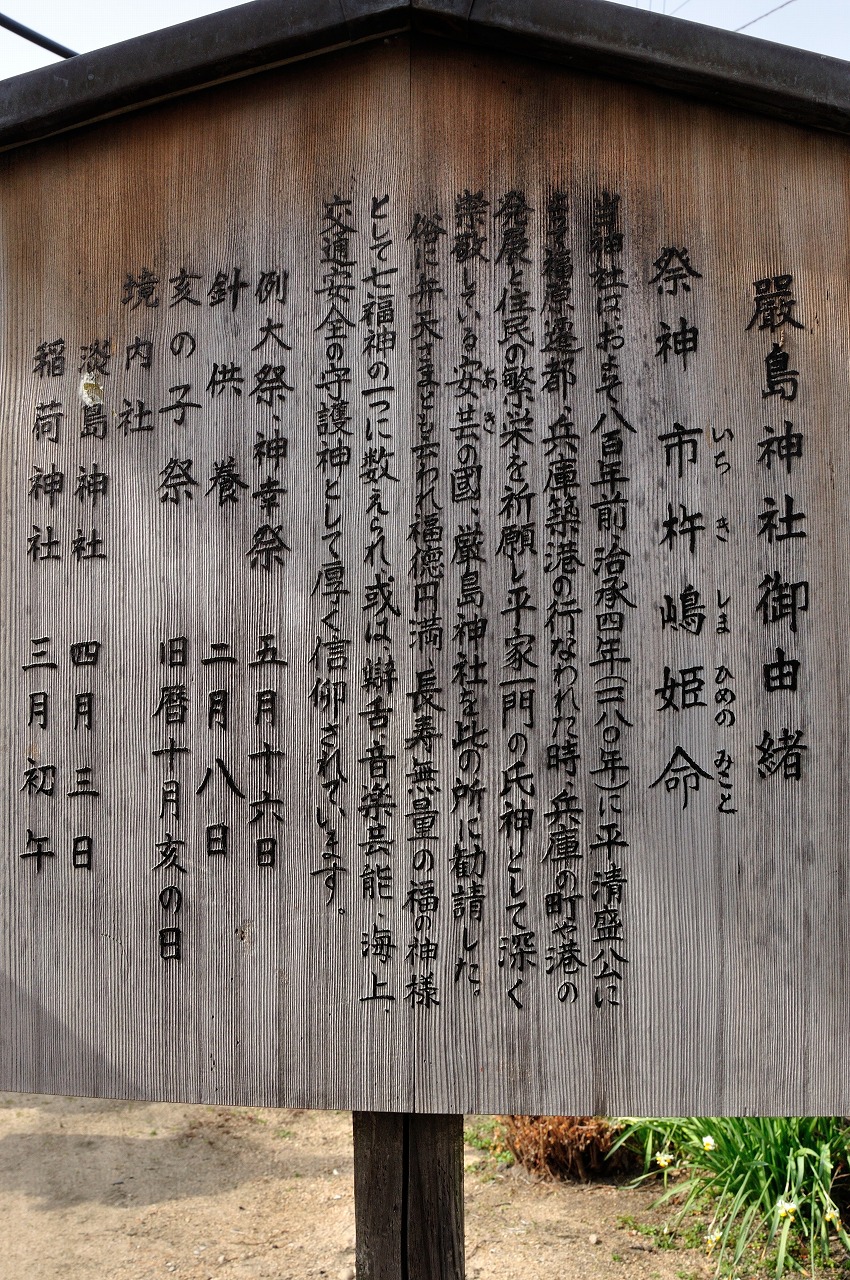 嚴島神社御由緒
祭神 市杵嶋姫命
いちきしまひめのみこと
当神社は、およそ八百年前、治承四年(一一八〇年)に平清盛公に
よる福原遷都、兵庫築港の行なわれた時、兵庫の町や港の
発展と住民の繁栄を祈願し平家一門の氏神として深く
崇敬している安芸の國、厳島神社を此の所に勧請した。
あき
俗に弁天さまとも云われ福徳円満、長寿無量の福の神様
として七福神の一つに数えられ、或は、辯舌、音楽芸能、海上、
交通安全の守護神として厚く信仰されています。
例大祭、神幸祭 五月十六日
針供養 二月八日
亥の子祭 旧暦十月亥の日
境内社
淡島神社 四月三日
稲荷神社 三月初午